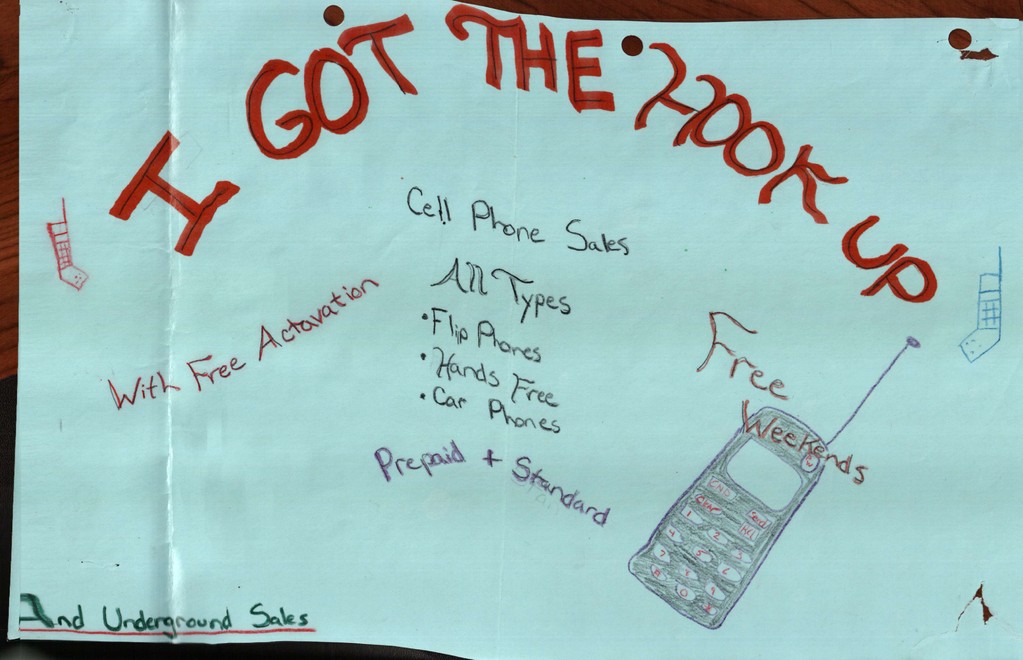 I GOT THE HOOK UP
Cell Phone Sales
All Types
• Flip Phones
• Hands Free
• Car Phones
With Free Actavation
Free
Weekends
Prepaid + Standard
And Underground Sales